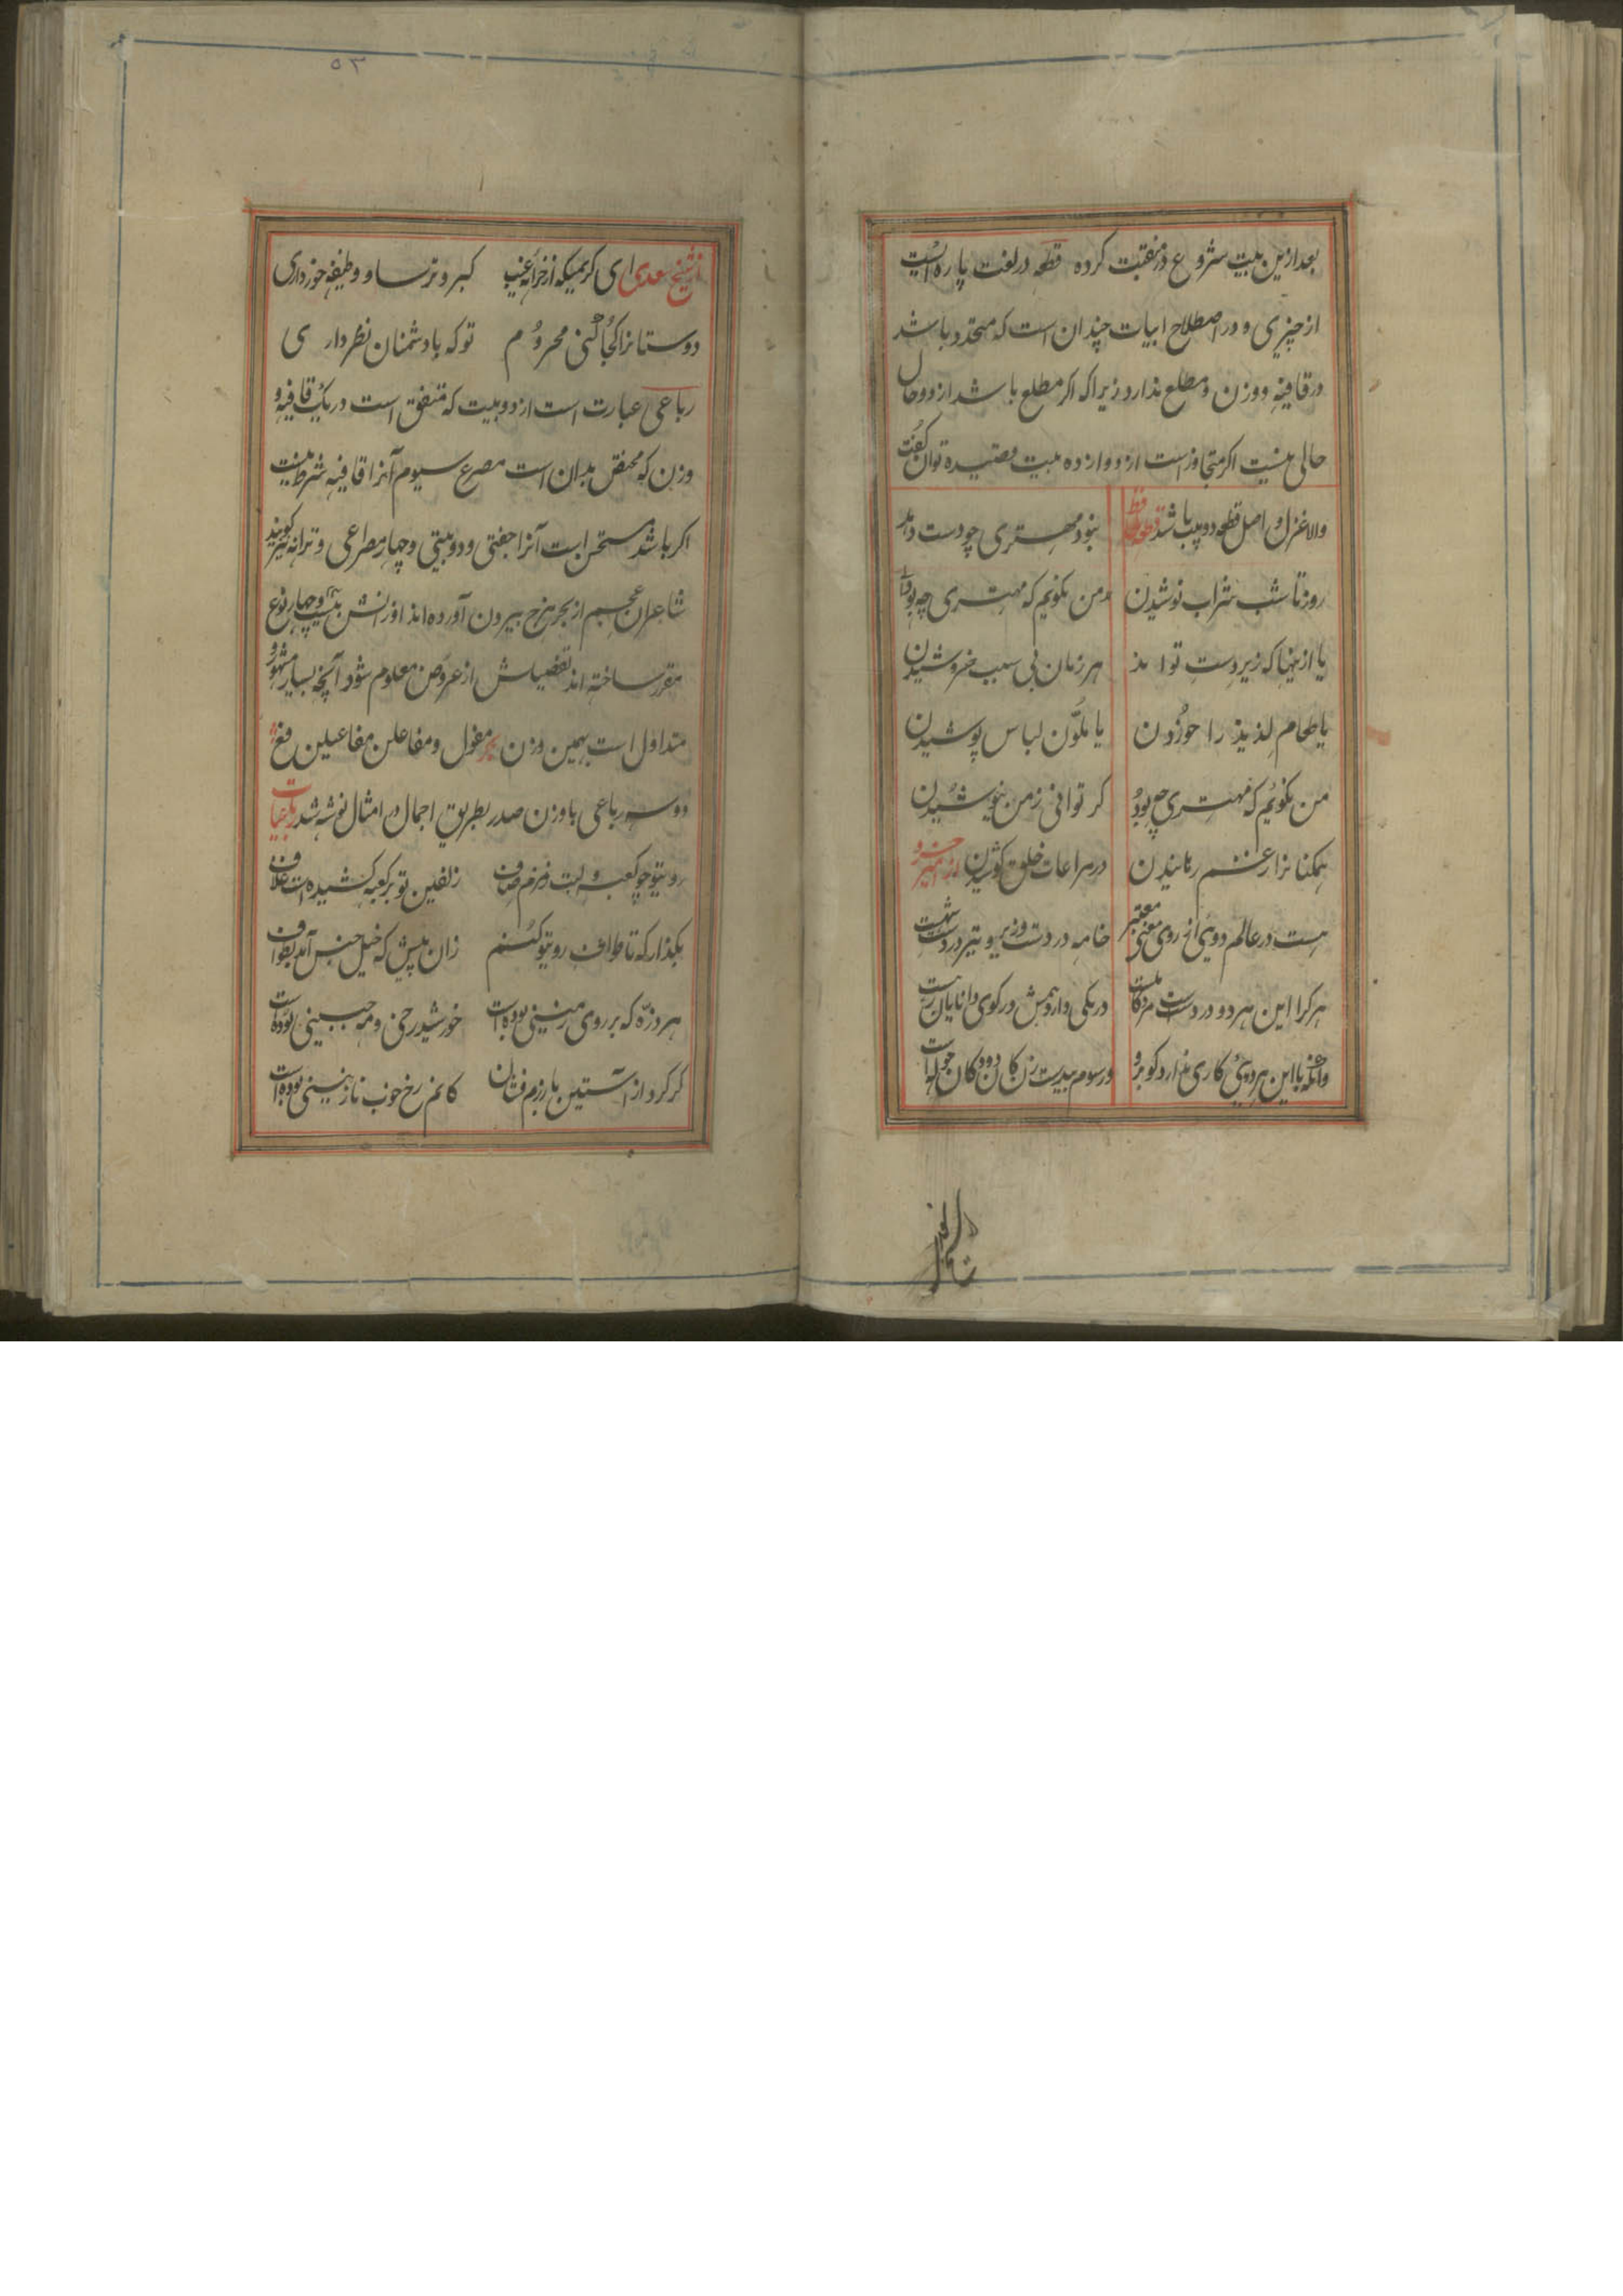 بعد ازین بیت شروع در منقبت کرده قطعه در لغت پاره ایست
از چیزی و در اصطلاح ابیات چندان است که متحد باشد
در قافیه و وزن و مطلع ندارد زیرا که اکر مطلع باشد از دو حال
خالی نیست اکر متجاوز است از دوازده بیت قصیده توان کفت
والا غزل و اصل قطعه دو بیت باشد قطعه نبود مهتری چو دست دهد
روز تا شب شراب نوشیدن من نکویم که مهتری چه بود
یا ازینها که زیر دست تواند هر زمان بی سبب خروشیدن
یا طعام لذیذ را خوردن یا ملون لباس پوشیدن
من بکویم که مهتری چه بود کر توانی ز من نیوشیدن
بمکنانرا ز غم رهانیدن در مراعات خلق کوشیدن امیر خسرو
هست در عالم دوی از روی معنی معتبر خامه در دست وزیر و تیر در دست
هر کرا این هر دو در دست در یکی دارو همش در کوی دانایان رهست
وانکه با این هر دوی کاری ندارد کو برو
دل
۵۳
از شیخ سعدی ای کریمیکه از خزانه غیب کبر و ترسا و وظیفه خور داری
دوستانرا کجا کنی محروم تو که با دشمنان نظر داری
رباعی عبارت است از دو بیت که متفق است در یک قافیه و
وزن که مختص بدان است مصرع سیوم آنرا قافیه شرط نیست
اکر باشد مستحسن است آنرا جفتی و دو بیتی و چهار مصراعی و ترانه نیز کویند
شاعران عجم از بحر هزج بیرون آورده اند اوزانش بیست و چهار نوع
مقرر ساخته اند تفصیلش از عروض معلوم شود آنچه بسیار مشهور و
متداول است بهمین وزن بحر مفعول و مفاعلن مفاعیلن فع
دو سه رباعی باوزن صدر بطریق اجمال در امثال نوشته شد رباعیات
رویتو چو کعبه و لبت زمزم صاف زلفین تو بر کعبه کشیده است غلاف
بکذار که تا طواف رویتو کنم زان پیش که خیل حبش آید بطواف
هر ذره که بر روی زمینی بوده است خورشید رخی و مه جبینی بوده است
کرد از آستین بازرم فشان کانهم رخ خوب نازنینی بوده است